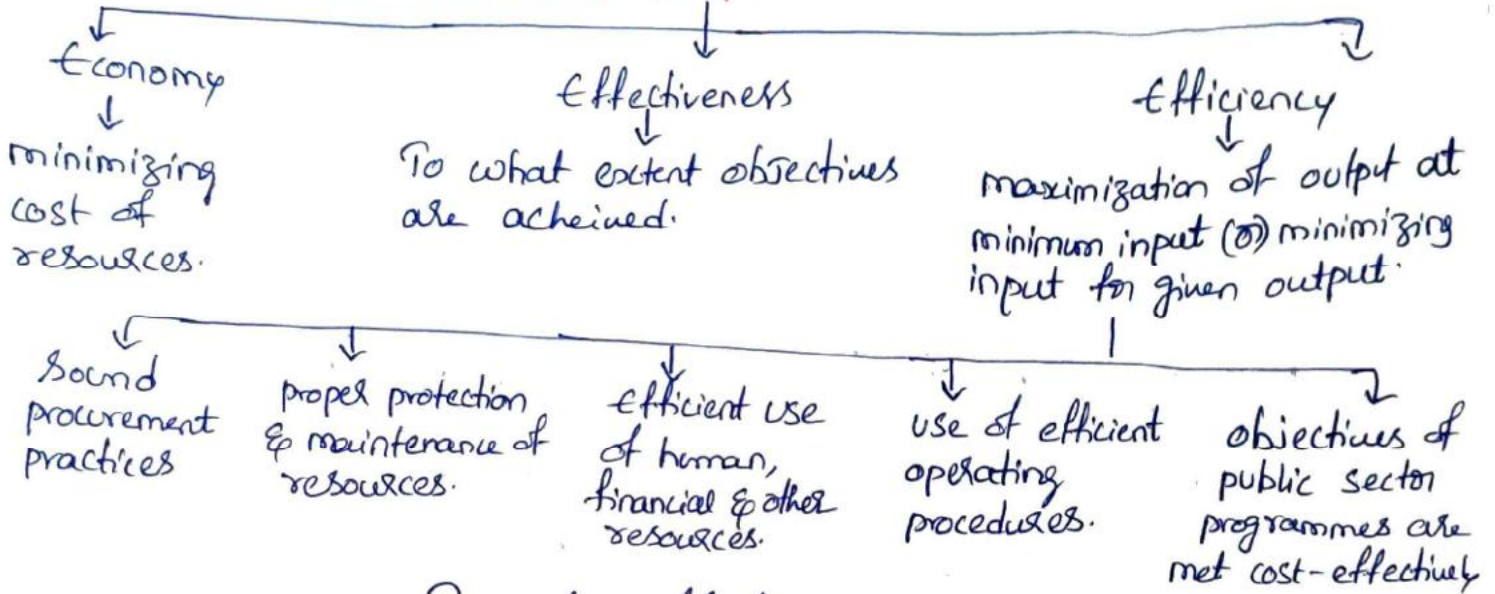 Economy
minimizing
cost of
resources.
Effectiveness
To what extent objectives
are acheived.
Efficiency
maximization of output at
minimum input (or) minimizing
input for given output.
Sound
procurement
practices
proper protection
& maintenance of
resources.
Efficient use
of human,
financial & other
resources.
use of efficient
operating
procedures.
objectives of
public sector
programmes are
met cost-effectively